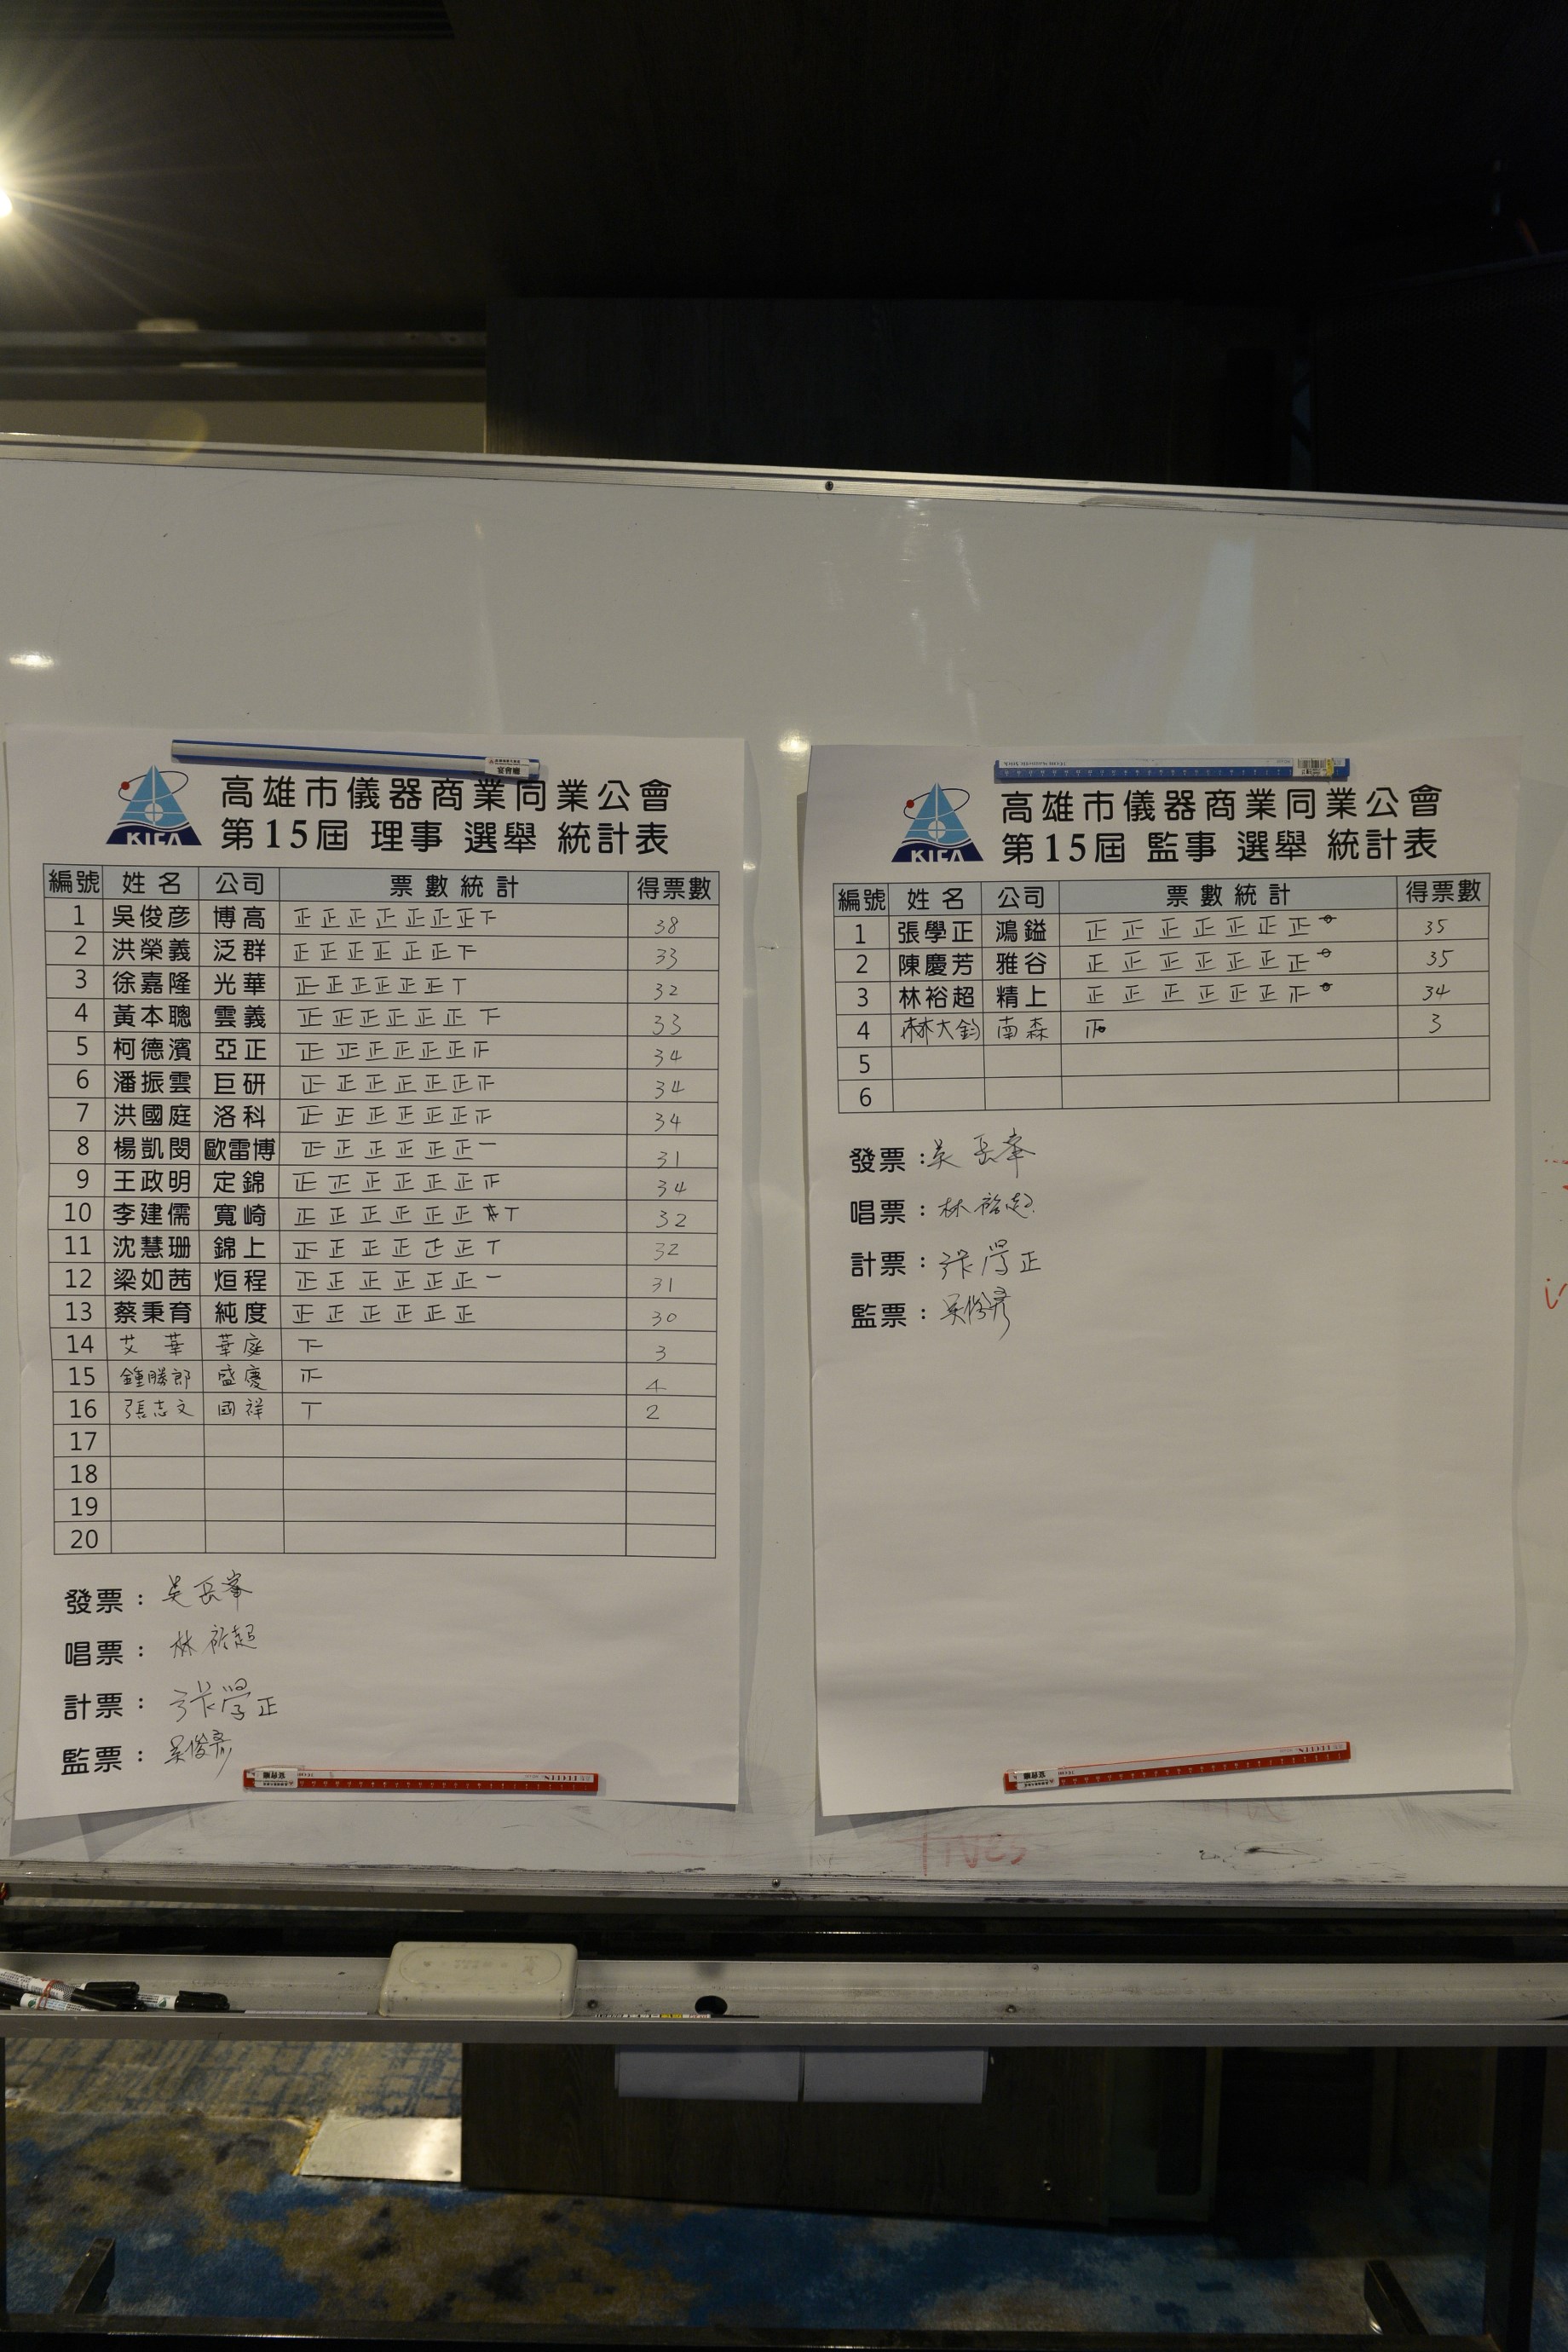 高雄市儀器商業同業公會
第15屆 理事 選舉 統計表
KIFA
編號 姓名 公司 票數統計 得票數
1 吳俊彥 博高 正正正正正正正下 38
2 洪榮義 泛群 正正正正正正下 33
3 徐嘉隆 光華 正正正正正正丅 32
4 黃本聰 雲義 正正正正正正下 33
5 柯德濱 亞正 正正正正正正 34
6 潘振雲 巨研 正正正正正正 34
7 洪國庭 洛科 正正正正正正 34
8 楊凱閔 歐雷博 正正正正正正一 31
9 王政明 定錦 正正正正正正 34
10 李建儒 寬崎 正正正正正正丅 32
11 沈慧珊 錦上 正正正正正正丅 32
12 梁如茜 烜程 正正正正正正一 31
13 蔡秉育 純度 正正正正正正 30
14 艾華 華庭 下 3
15 鍾勝郎 盛慶 4
16 張志文 國祥 丅 2
17
18
19
20
發票：吳岳峯
唱票：林裕超
計票：張學正
監票：吳俊彥
高雄市儀器商業同業公會
第15屆 監事 選舉 統計表
KIFA
編號 姓名 公司 票數統計 得票數
1 張學正 鴻鎰 正正正正正正正 35
2 陳慶芳 雅谷 正正正正正正正 35
3 林裕超 精上 正正正正正正 34
4 林大鈞 南森 3
5
6
發票：吳岳峯
唱票：林裕超
計票：張學正
監票：吳俊彥